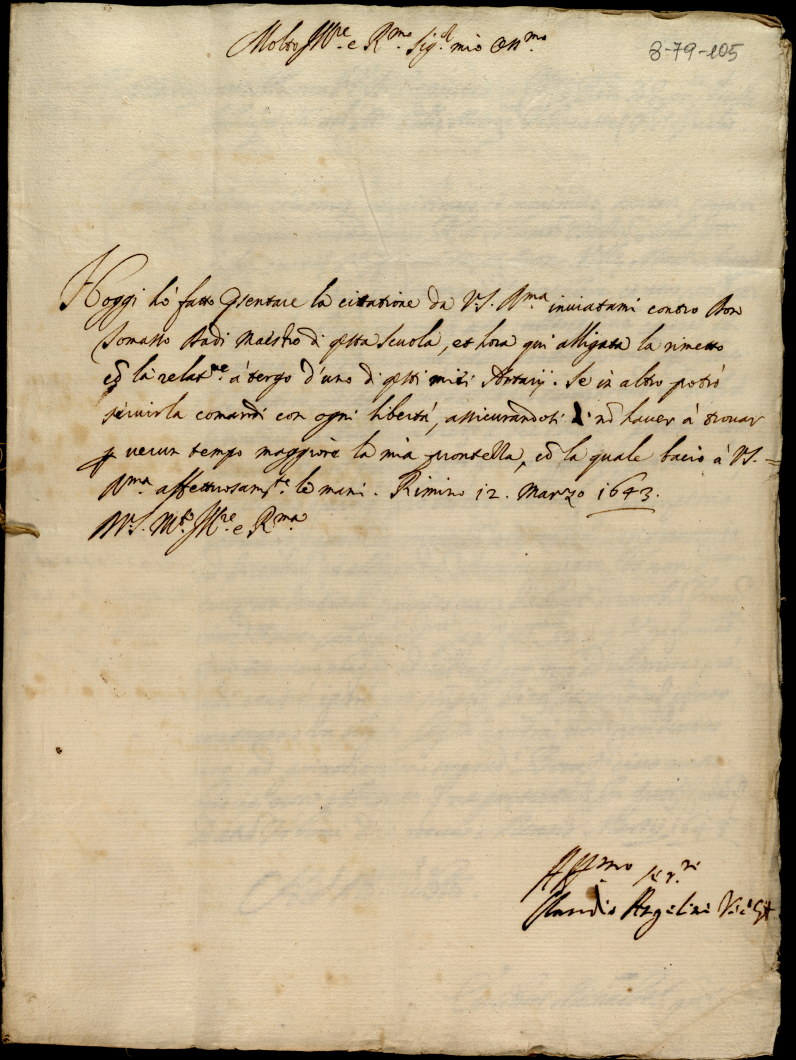 Molto Ill.re e R.mo Sig.r mio Oss.mo
8-79-105
Hoggi hó fatto p̃sentare la citatione da V.S. R.ma inviatami contro Don
Tomasso Badi Maestro di q̃sta scuola, et hora qui alligata la rimetto
cõ la relat.ne á tergo d'uno di q̃sti miei Notarij. Se in altro potró
servirla comandi con ogni libertá, assicurandoti di nõ haver á trovar
ꝑ verun tempo maggiore la mia prontezza, cõ la quale bacio á V.S.
R.ma affettuosam.te le mani. Rimino 12. Marzo 1643.
D V.S. M.to Ill.re e R.ma
Aff.mo Ser.re
Claudio Angelini Vic.